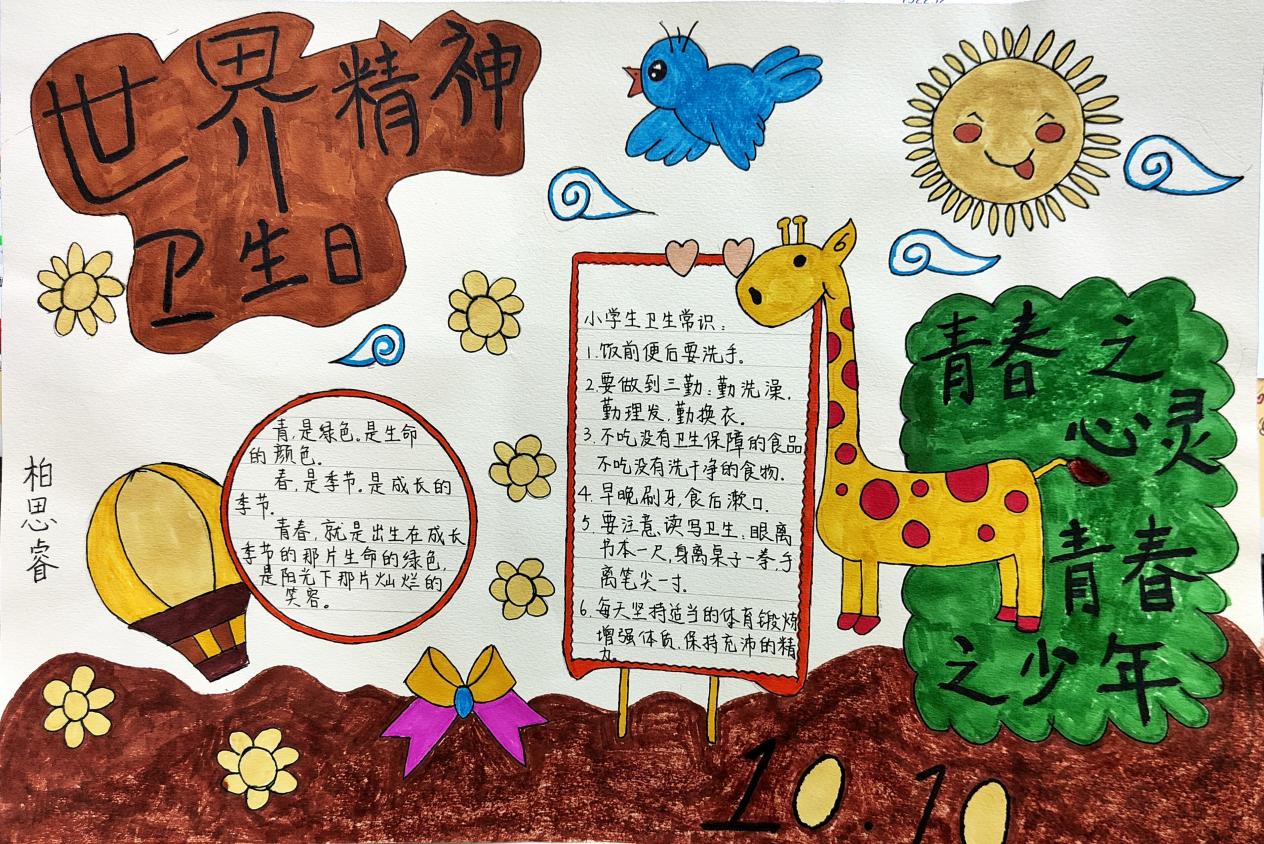 世界精神
卫生日
青春之
心灵
青春
之少年
小学生卫生常识：
1.饭前便后要洗手。
2.要做到三勤：勤洗澡，
勤理发，勤换衣。
3.不吃没有卫生保障的食品
不吃没有洗干净的食物。
4.早晚刷牙，食后漱口。
5.要注意读写卫生，眼离
书本一尺，身离桌子一拳，手
离笔尖一寸。
6.每天坚持适当的体育锻炼
增强体质，保持充沛的精
力。
青，是绿色。是生命
的颜色。
春，是季节。是成长的
季节。
青春，就是出生在成长
季节的那片生命的绿色，
是阳光下那片灿烂的
笑容。
柏思睿
10.10